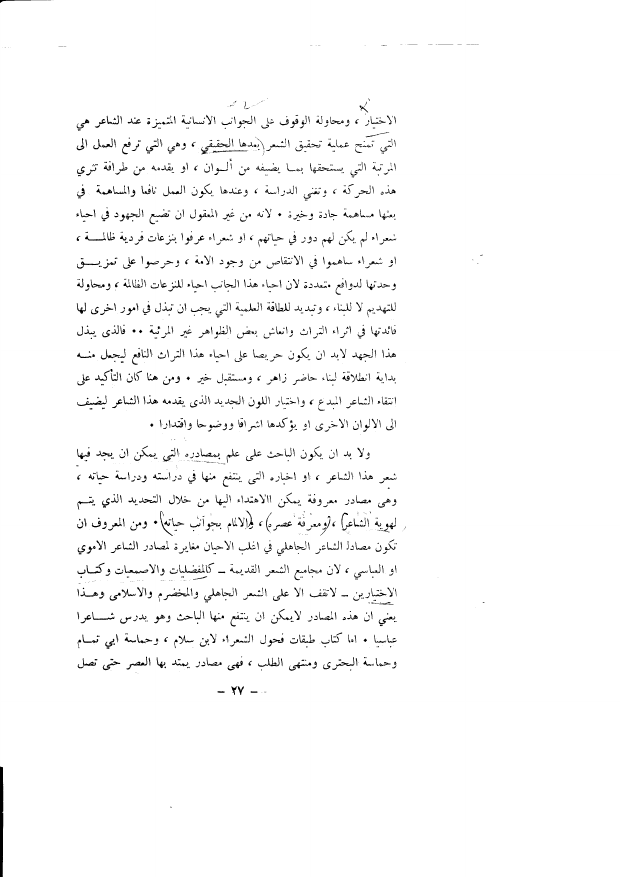 الاختيار ، ومحاولة الوقوف على الجوانب الانسانية المتميزة عند الشاعر هي
التي تمنح عملية تحقيق الشعر (بعدها الحقيقي ، وهي التي ترفع العمل الى
المرتبة التي يستحقها بما يضيفه من ألوان ، او يقدمه من طرافة تثري
هذه الحركة ، وتغني الدراسة ، وعندها يكون العمل نافعا والمساهمة في
بعثها مساهمة جادة وخيرة • لانه من غير المعقول ان تضيع الجهود في احياء
شعراء لم يكن لهم دور في حياتهم ، او شعراء عرفوا بنزعات فردية ظالمة ،
او شعراء ساهموا في الانتقاص من وجود الامة ، وحرصوا على تمزيق
وحدتها لدوافع متعددة لان احياء هذا الجانب احياء للنزعات الظالمة ، ومحاولة
للتهديم لا للبناء ، وتبديد للطاقة العلمية التي يجب ان تبذل في امور اخرى لها
فائدتها في اثراء التراث وانعاش بعض الظواهر غير المرئية •• فالذى يبذل
هذا الجهد لابد ان يكون حريصا على احياء هذا التراث النافع ليجعل منه
بداية انطلاقة لبناء حاضر زاهر ، ومستقبل خير • ومن هنا كان التأكيد على
انتقاء الشاعر المبدع ، واختيار اللون الجديد الذى يقدمه هذا الشاعر ليضيف
الى الالوان الاخرى او يؤكدها اشراقا ووضوحا واقتدارا •
ولا بد ان يكون الباحث على علم بمصادره التي يمكن ان يجد فيها
شعر هذا الشاعر ، او اخباره التي ينتفع منها في دراسته ودراسة حياته ،
وهى مصادر معروفة يمكن االاهتداء اليها من خلال التحديد الذي يتم
لهوية الشاعر) ، (ومعرفة عصره) ، (والالمام بجوانب حياته) • ومن المعروف ان
تكون مصادر الشاعر الجاهلي في اغلب الاحيان مغايرة لمصادر الشاعر الاموي
او العباسي ، لان مجاميع الشعر القديمة – كالمفضليات والاصمعيات وكتاب
الاختيارين – لاتقف الا على الشعر الجاهلي والمخضرم والاسلامى وهذا
يعني ان هذه المصادر لايمكن ان ينتفع منها الباحث وهو يدرس شاعرا
عباسيا • اما كتاب طبقات فحول الشعراء لابن سلام ، وحماسة ابي تمام
وحماسة البحترى ومنتهى الطلب ، فهى مصادر يمتد بها العصر حتى تصل
– ٢٧ –